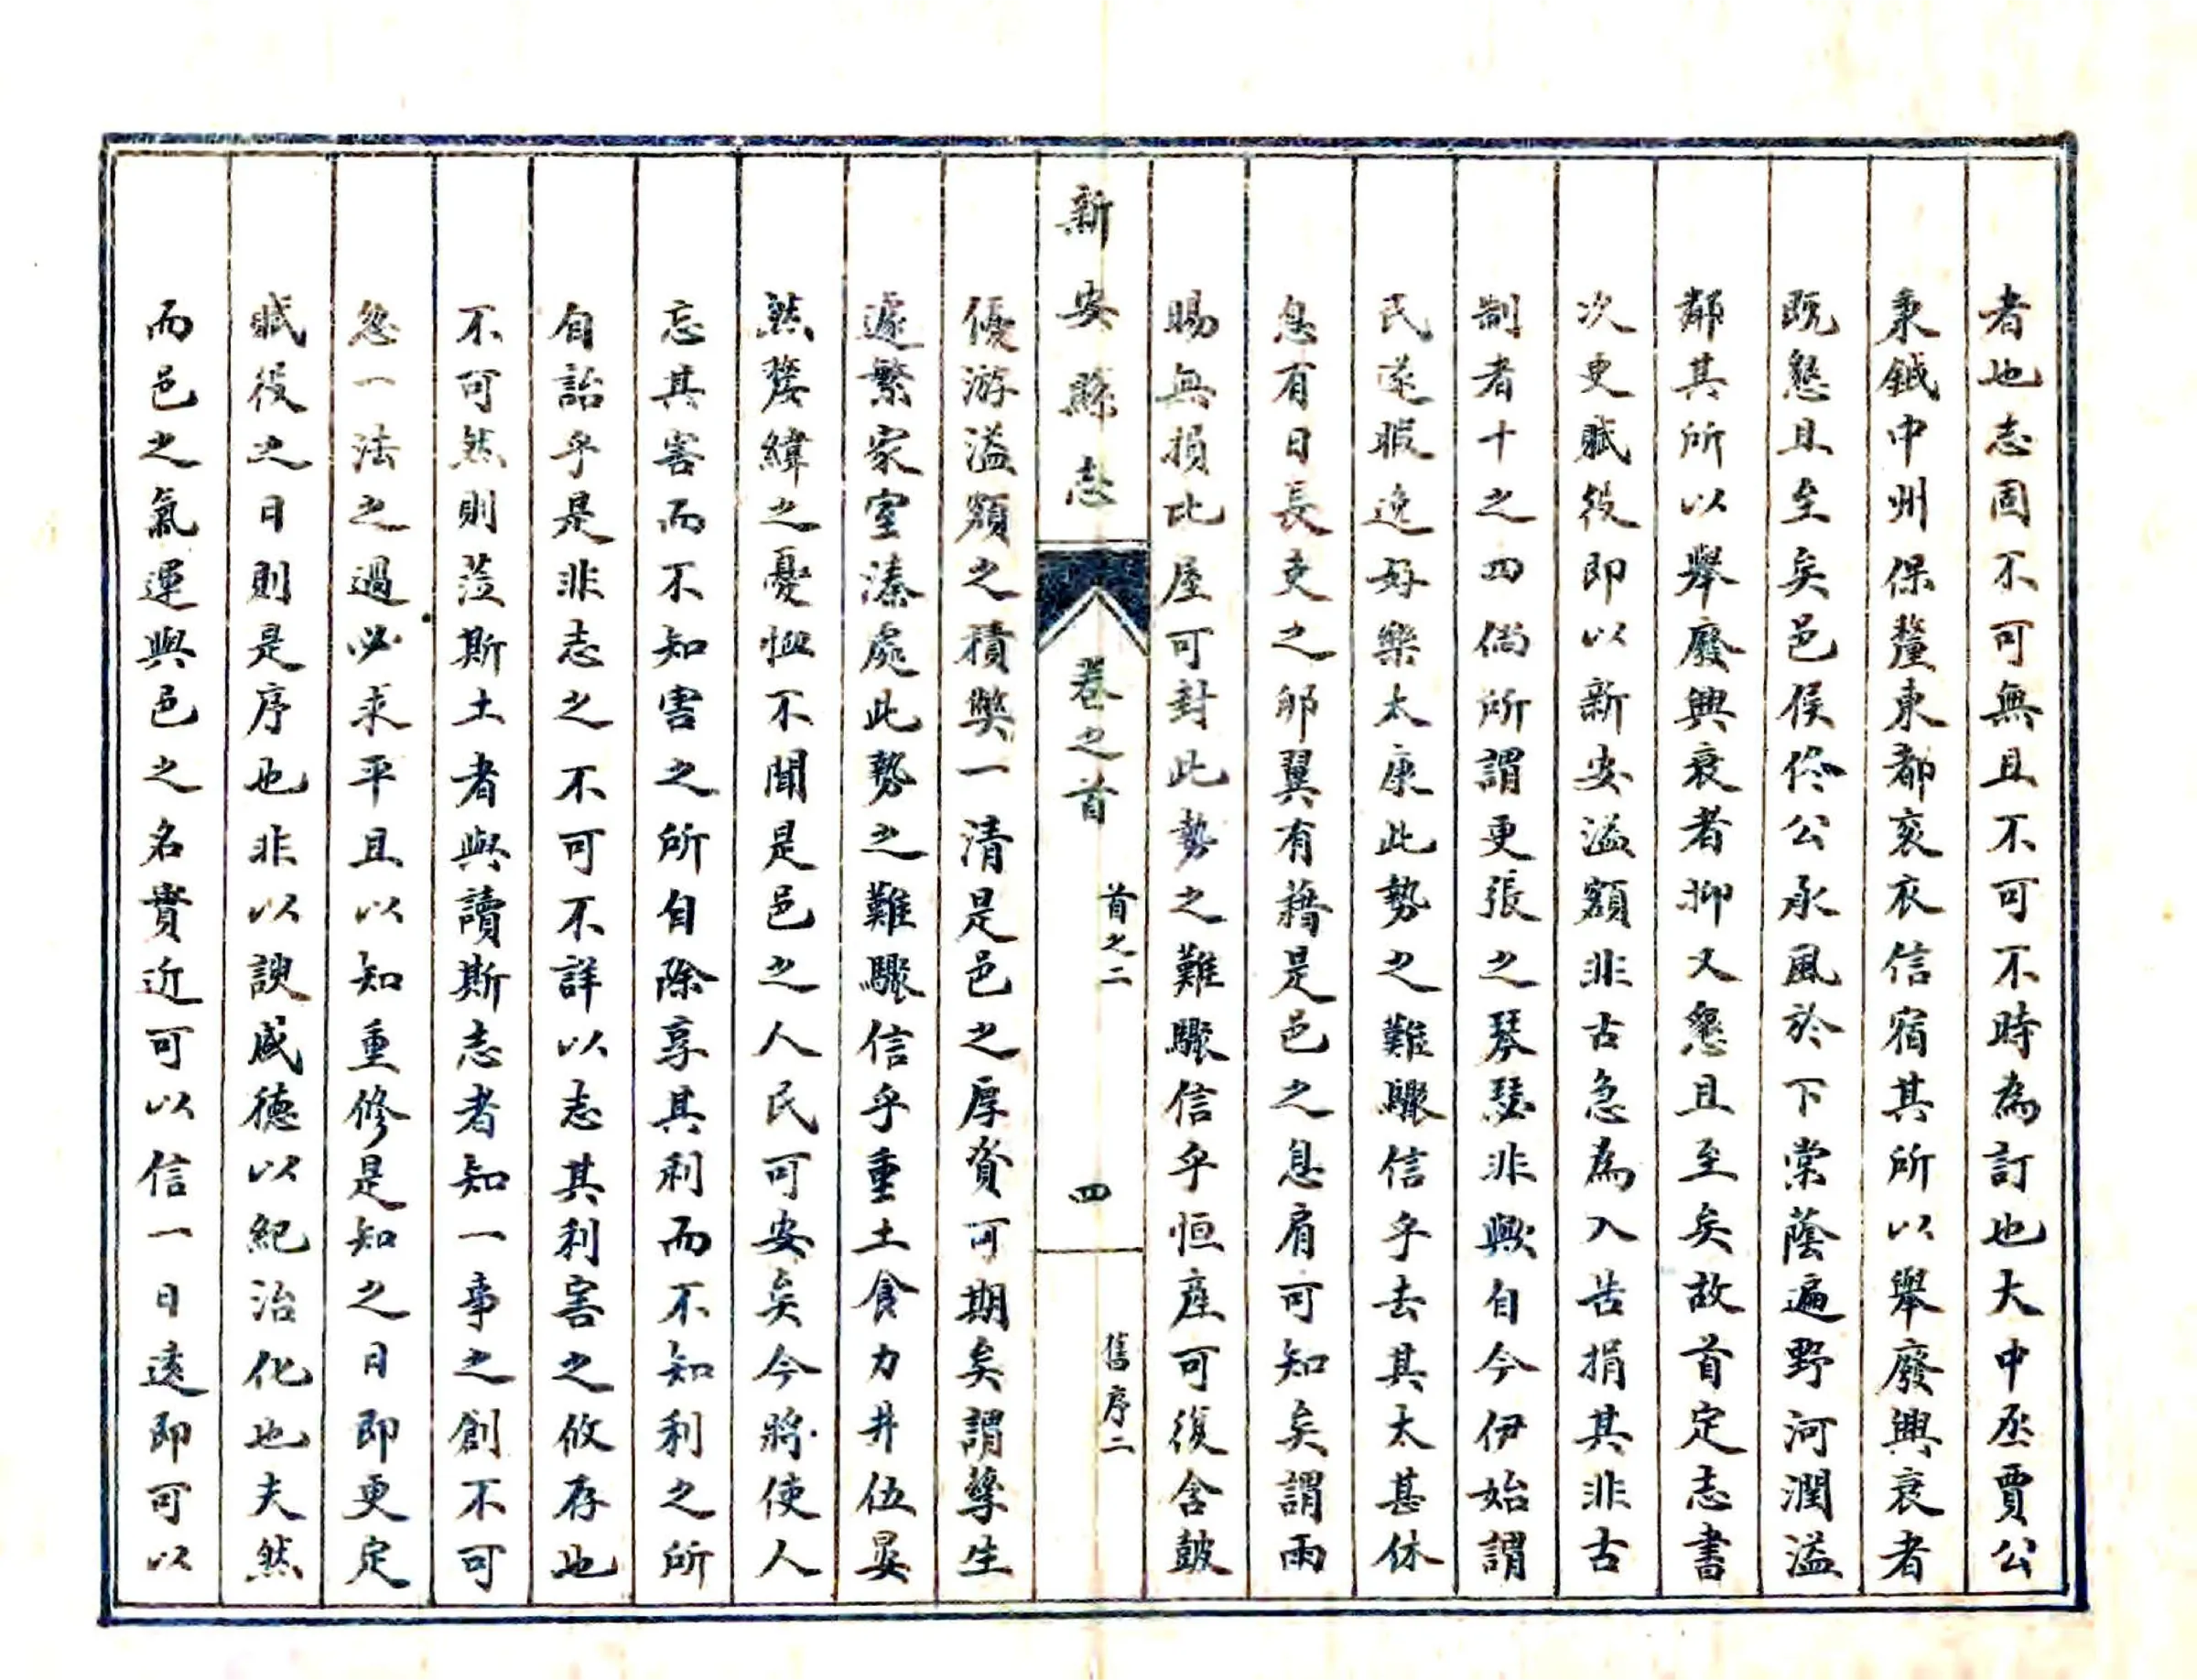 者也志固不可無且不可不時為訂也大中丞賈公
秉鉞中州保釐東都袞衣信宿其所以舉廢興衰者
既懇且至矣邑侯佟公承風於下棠蔭遍野河潤溢
鄰其所以舉廢興衰者抑又懇且至矣故首定志書
次更賦役即以新安溢額非古急為入告捐其非古
制者十之四倘所謂更張之琴瑟非歟自今伊始謂
民遂暇逸好樂太康此勢之難驟信乎去其太甚休
息有日長吏之卵翼有藉是邑之息肩可知矣謂雨
暘無損比屋可封此勢之難驟信乎恒產可復含皷
優游溢額之積獘一清是邑之厚資可期矣謂孳生
遽繁家室溱處此勢之難驟信乎重土食力井伍晏
然嫠緯之憂恤不聞是邑之人民可安矣今將使人
忘其害而不知害之所自除享其利而不知利之所
自詒乎是非志之不可不詳以志其利害之攸存也
不可然則蒞斯土者與讀斯志者知一事之創不可
忽一法之過必求平且以知重修是知之日即更定
賦役之日則是序也非以諛盛德以紀治化也夫然
而邑之氣運與邑之名實近可以信一日遠即可以
新安縣志
卷之首
首之二
四
舊序二